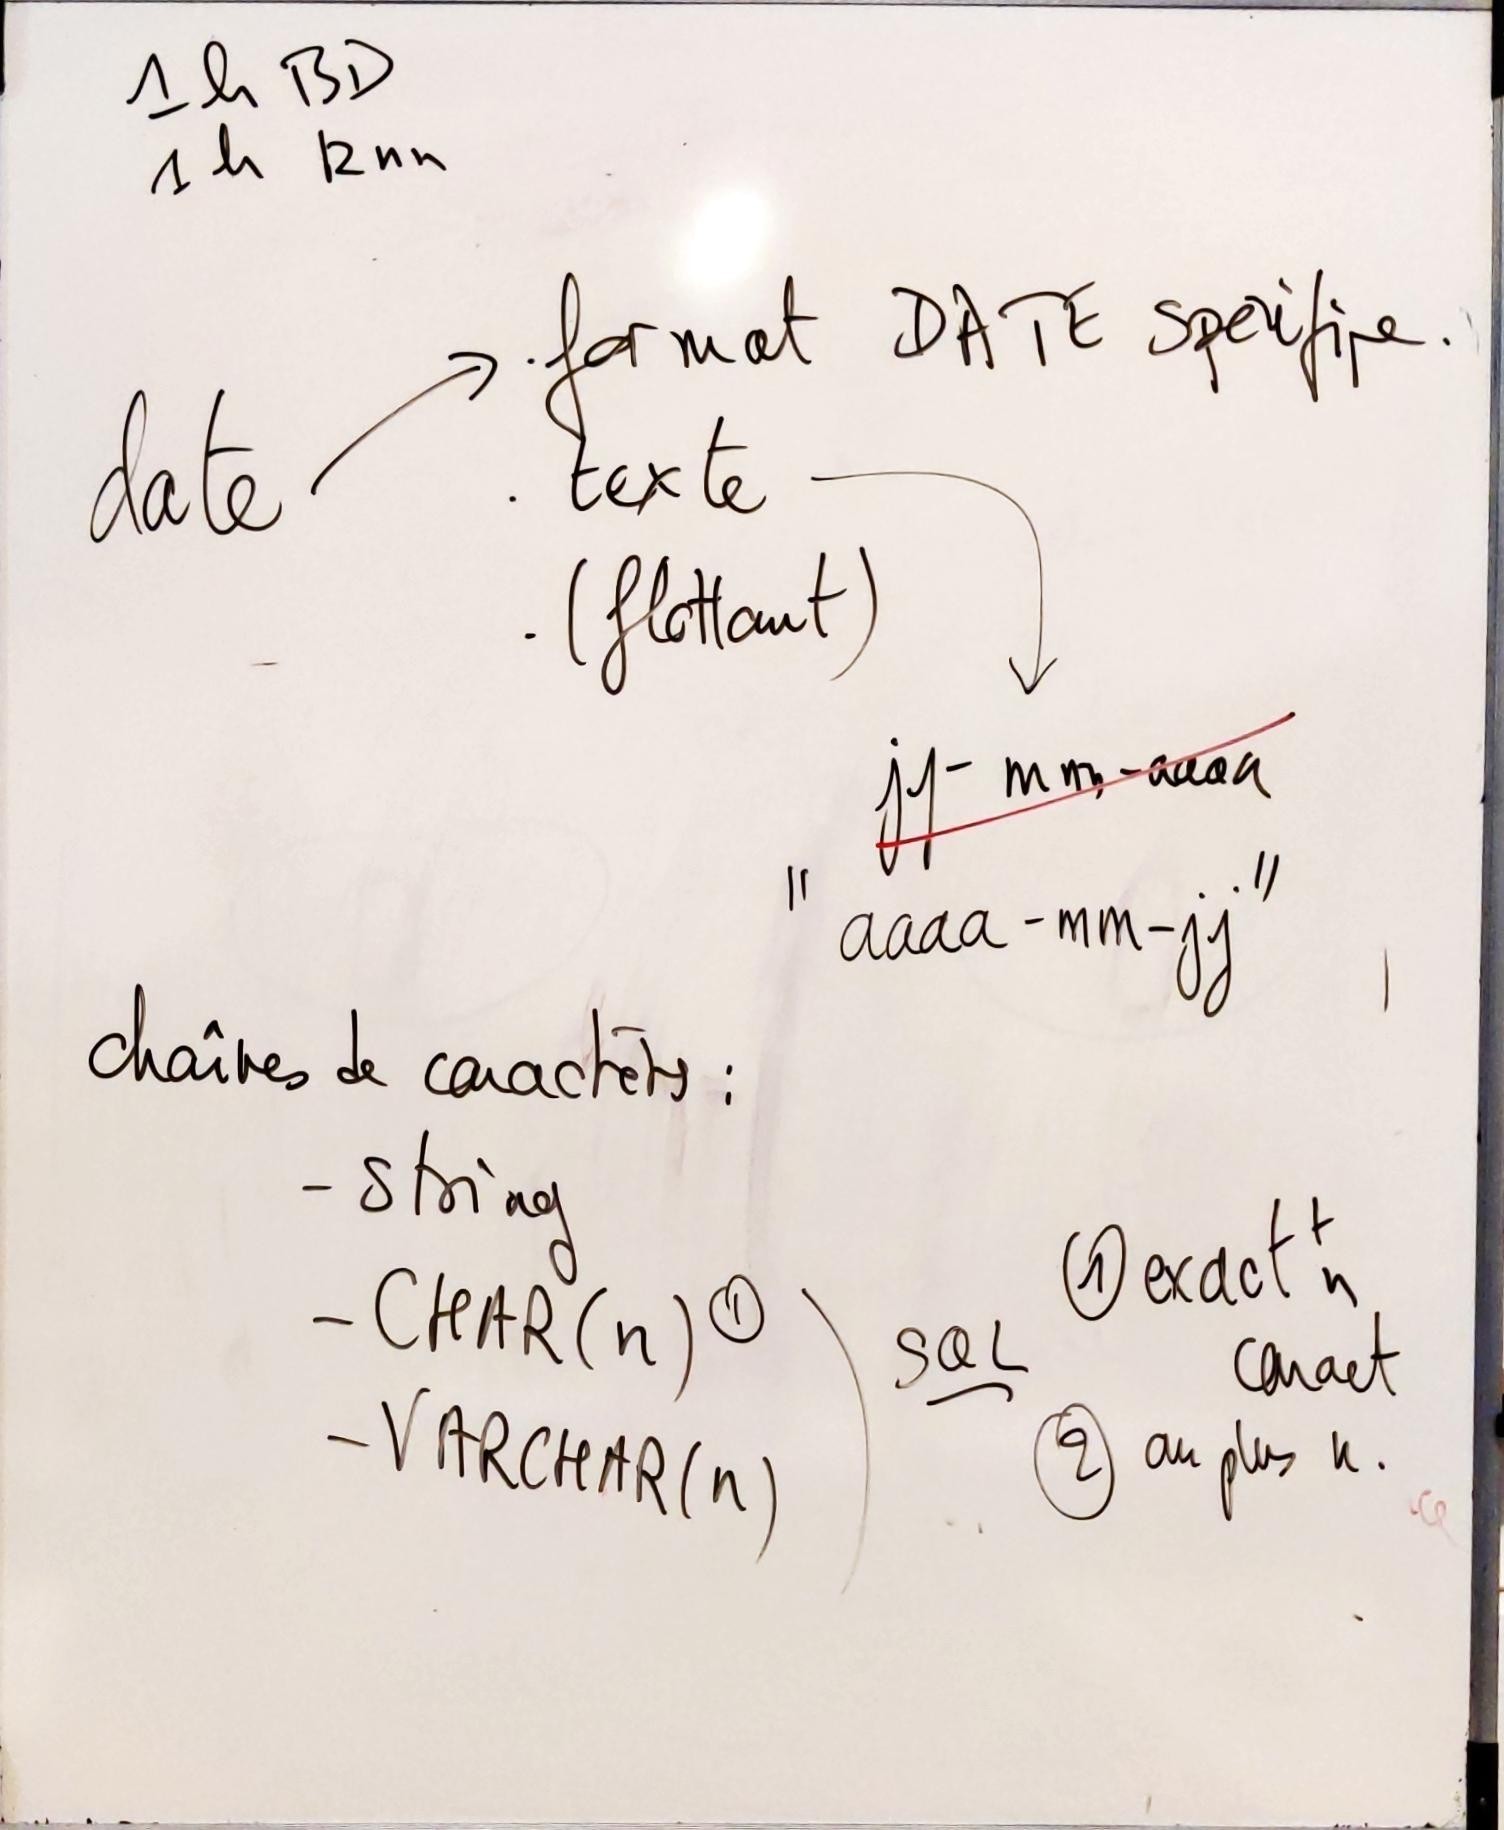 1h BD
1h knn
date → . format DATE spécifique.
. texte
. (flottant)
jj-mm-aaaa
"aaaa-mm-jj"
chaînes de caractères :
- string
- CHAR(n) ①
- VARCHAR(n)
SQL
① exact^t n
caract
② au plus n.